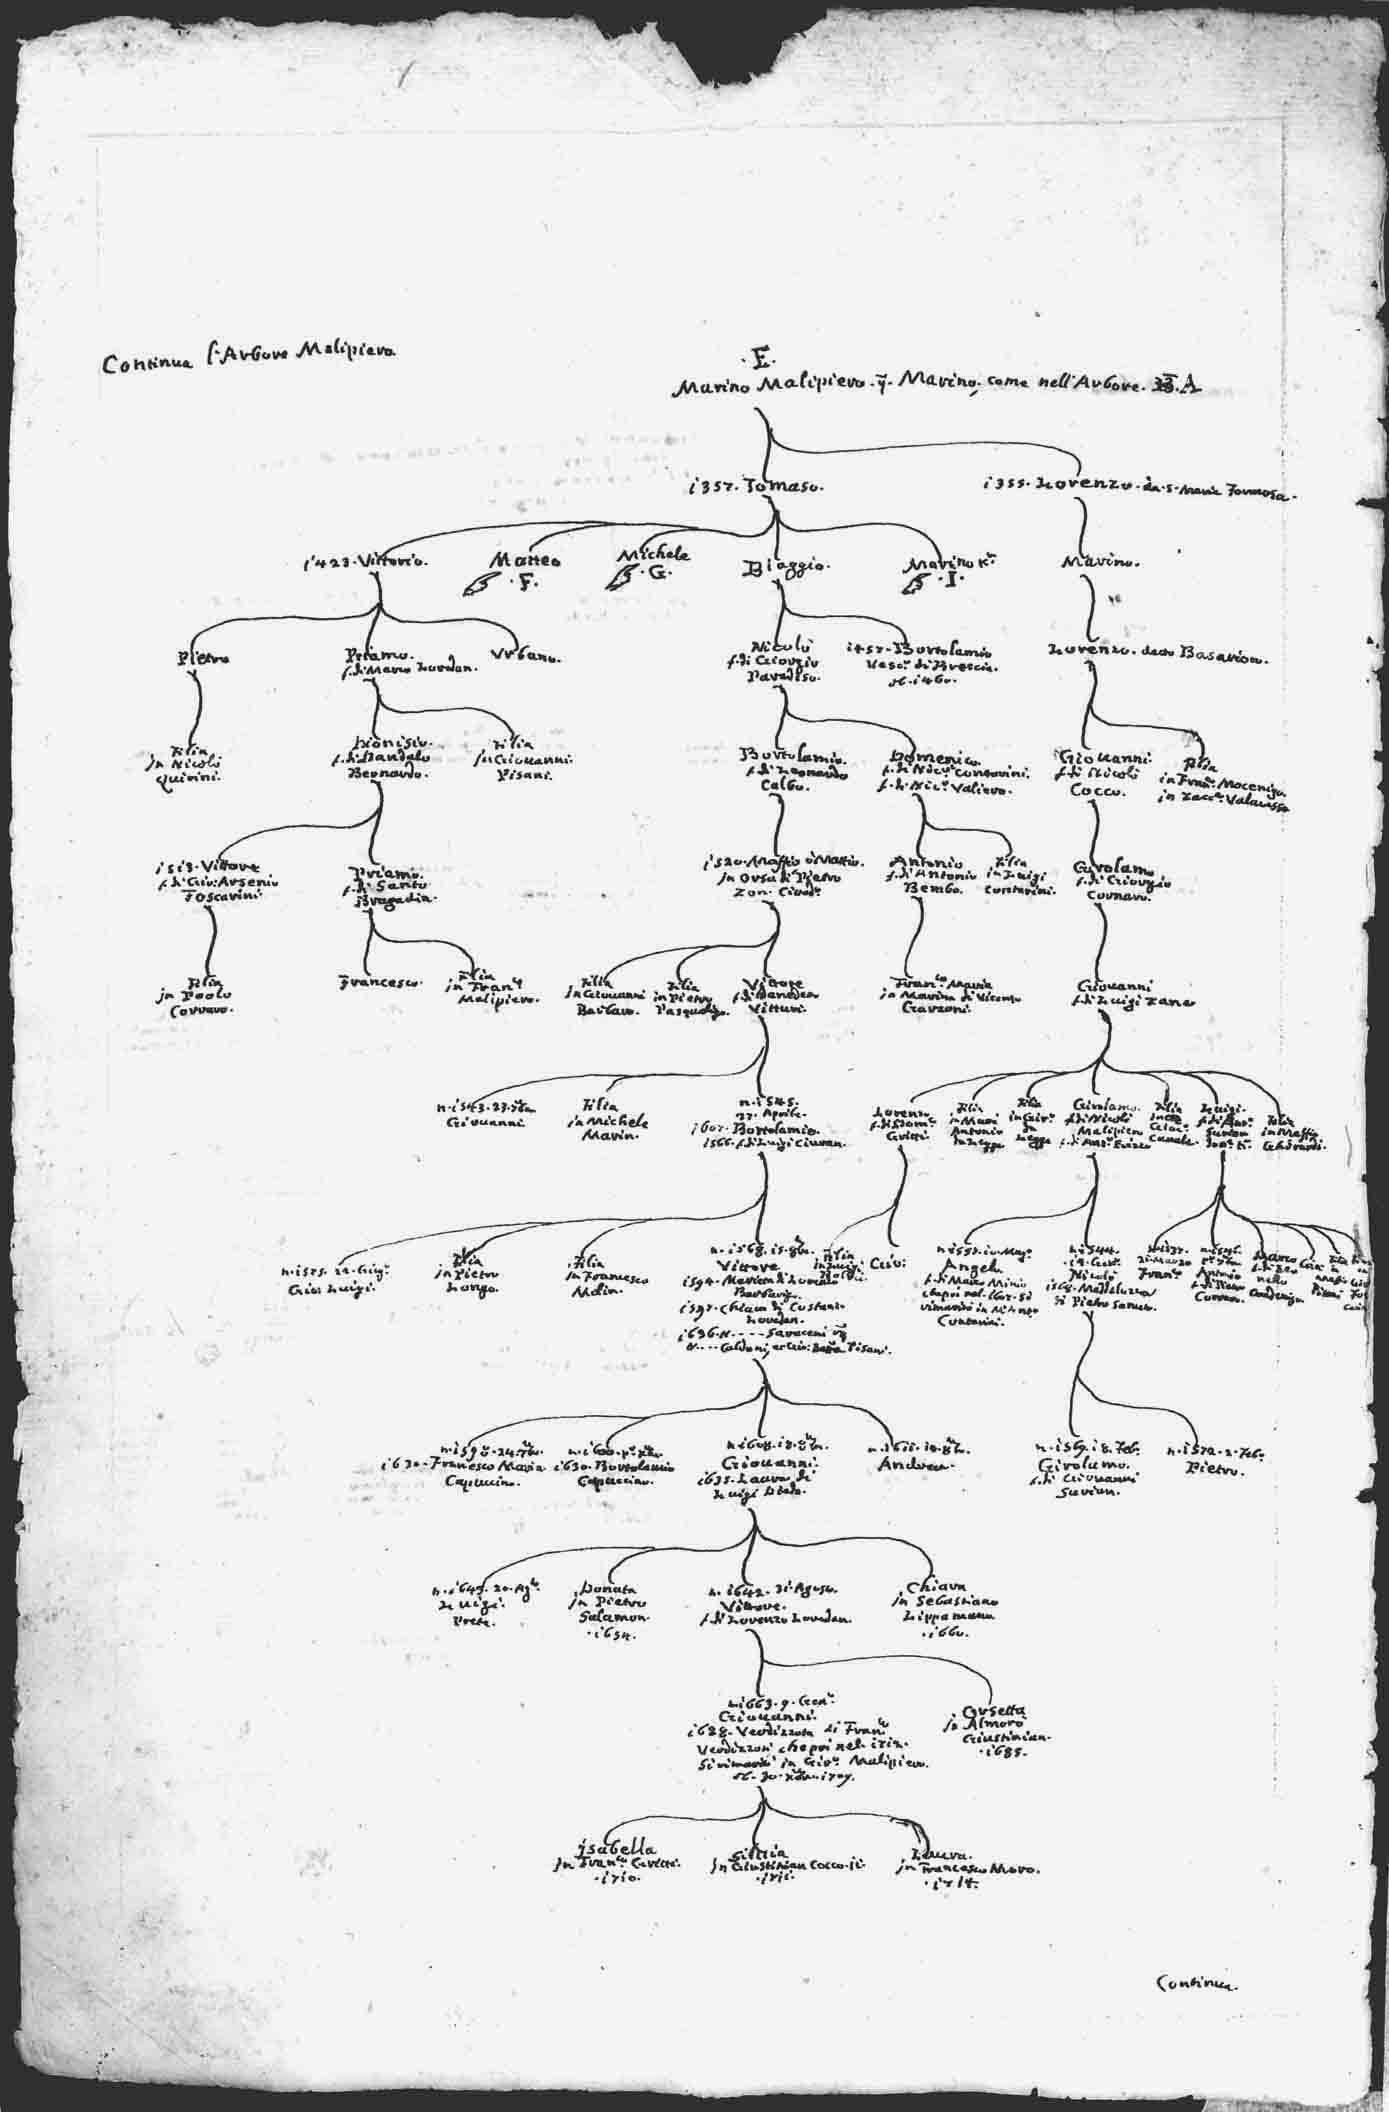 Continua l'Arbore Malipiero
.E.
Marino Malipiero. q. Marino, come nell'Arbore. A
i357. Tomaso.
i355. Lorenzo. da. S. Maria Formosa.
i423. Vittorio.
Matteo
.F.
Michele
.G.
Biaggio.
Marino Kr.
.I.
Marino.
Pietro
Priamo.
f. di Marco Loredan.
Urbano.
Nicolò
f. di Giorgio
Paradiso.
i457. Bortolamio
Vesco. di Brescia.
ob. i460.
Lorenzo. detto Basarion.
Filia
in Nicolò
Quirini.
Dionisio.
f. di Dandolo
Bernardo.
Filia
in Giouanni
Pisani.
Bortolamio.
f. di Leonardo
Calbo.
Domenico.
f. di Nico. Contarini.
f. di Nico. Valiero.
Giouanni
f. di Nicolò
Cocco.
Filia
in Frano. Mocenigo.
in Zacca. Valaresso
i5i3. Vittore
f. di Gio: Arsenio
Foscarini
Priamo.
f. di Santo
Bragadin.
i520. Maffio ò Mattio.
in Orsa di Pietro
Zon. Citta.
Antonio
f. di Antonio
Bembo.
Filia
in Luigi
Contarini.
Girolamo
f. di Giorgio
Cornaro.
Filia
in Paolo
Corraro.
Francesco.
Filia
in Franco
Malipiero.
Filia
in Giouanni
Barbaro.
Filia
in Pietro
Pasqualigo.
Vittore
f. di Benedeto
Vitturi.
Franco. Maria
in Marina di Vicenzo
Garzoni.
Giouanni
f. di Luigi Zane
n. i543. 23. 7bre
Giouanni
Filia
in Michele
Marin.
n. i545.
27. Aprile.
i607. Bortolamio.
i566. f. di Luigi Ciuran.
Lorenzo
f. di Domo.
Gritti.
Filia
in Marc
Antonio
da Legge
Filia
in Giro.
da
Legge
Girolamo.
f. di Nicolò
Malipiero
f. di Ano. Erizzo
Filia
Canale.
Luigi.
f. di Ano.
Surian
Filia
in Maffio
Ghirardi.
n. i575. 22. Giug.
Gio: Luigi.
Filia
in Pietro
Longo.
Filia
in Francesco
Molin.
n. i568. i5. 8bre.
Vittore
i594. Marina di Lorenzo
Barbarigo
i597. Chiara di Costan.
Loredan.
i636. N. - - - - Saraceni
N. . . . Galdoni, et Gio: Batta Pisani.
Filia
in Luigi
Gio:
n. i557. 10. Mag.
Angelo
f. di Marco Minio
che poi nel. i605. si
rimaritò in
Contarini.
n. i544.
Nicolò
i568. Maddalena
di Pietro Sanudo.
n. i537.
21. Marzo
Frano.
n. i546.
Antonio
f. di Piero
Corraro.
Marco
Filia
Pisani
n. i598. 24. 7bre.
i630. Francesco Maria
Capucino.
n. i600. po. Xbre
i630. Bortolamio
Capuccino.
n. i608. i8. 8bre.
Giouanni.
i635. Laura di
Luigi Diedo.
n. i6ii. i0. 8bre.
Andrea.
n. i569. i8. Feb.
Girolamo.
f. di Giouanni
Surian.
n. i572. 2. Feb.
Pietro.
n. i645. 20. Ago.
Luigi.
Prete.
Donata
in Pietro
Salamon.
. i654.
n. i642. 3i Agosto.
Vittore.
f. di Lorenzo Loredan.
Chiara
in Sebastiano
Lippamano
. i660.
n. i663. 9. Gen.
Giouanni.
i688. Verdizzota di Franco
Verdizzoti che poi nel. i7i2.
Si rimaritò in Giro. Malipiero.
ob. 30. Xbre. i707.
Orsetta
in Almorò
Giustinian.
. i685.
Isabella
in Franco. Gritti.
. i7i0.
Silvia
in Giustinian Cocco. ii.
. i7ii.
Laura.
in Francesco Moro.
. i7i4.
Continua.